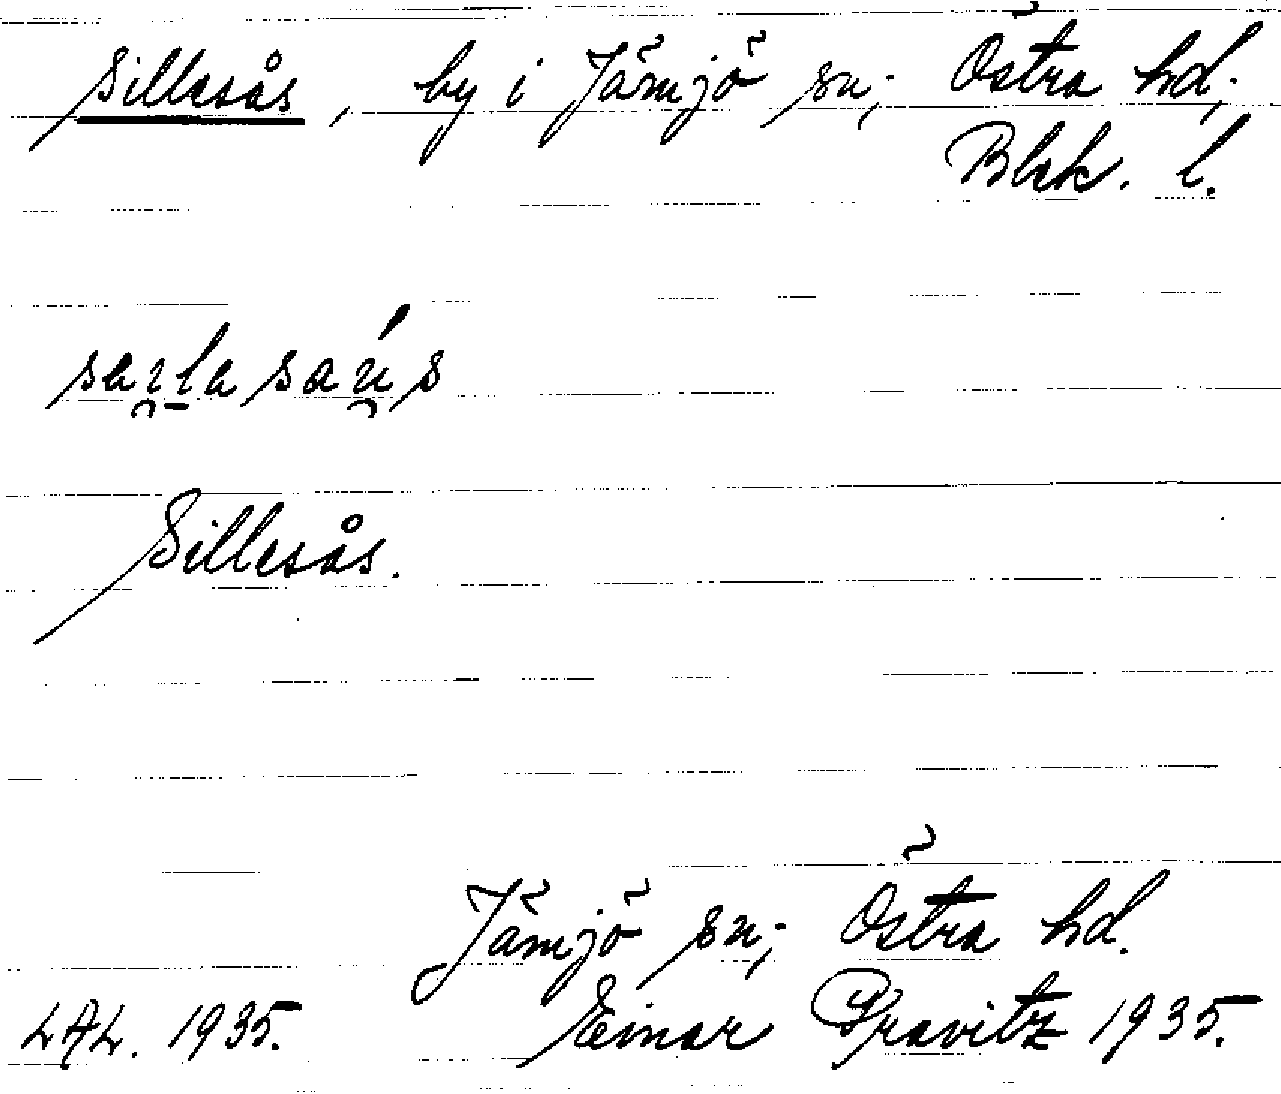 Sillesås, by i Jämjö sn; Östra hd;
Blek. l.
Sillesås.
Jämjö sn; Östra hd.
LAL. 1935. Einar Gravitz 1935.